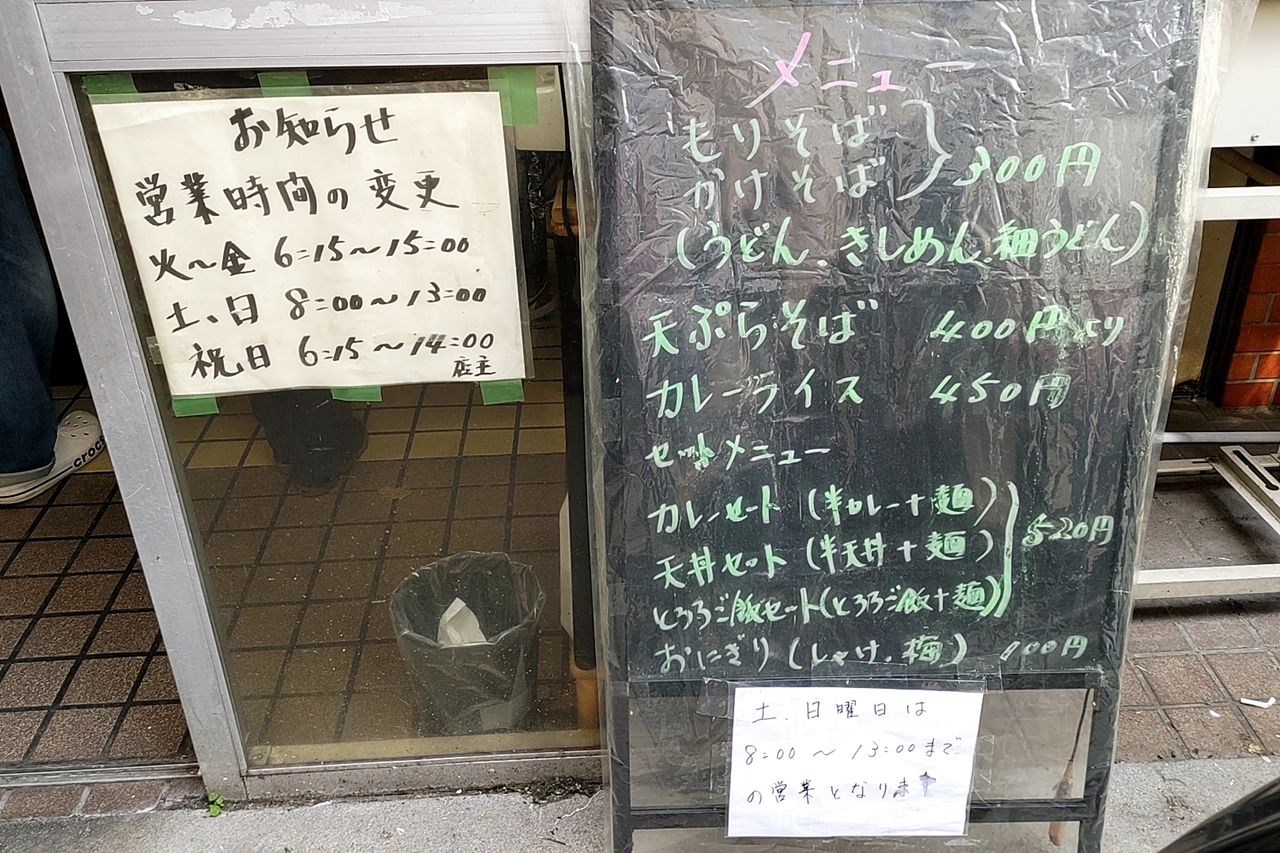 お知らせ
営業時間の変更
火〜金 6:15〜15:00
土、日 8:00〜13:00
祝日 6:15〜14:00
店主
crocs
メニュー
もりそば
かけそば
300円
(うどん、きしめん、細うどん)
天ぷらそば 400円より
カレーライス 450円
セットメニュー
カレーセット (半カレー+麺)
天丼セット (半天丼+麺)
とろろご飯セット(とろろご飯+麺)
520円
おにぎり (しゃけ、梅) 100円
土、日曜日は
8:00 〜 13:00まで
の営業となります